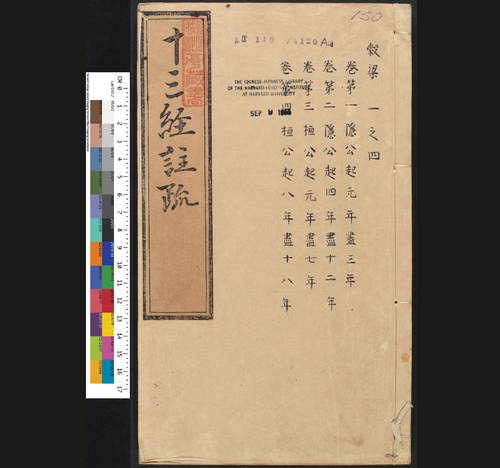 150
穀梁 一之四
卷第一 隱公起元年盡三年
卷第二 隱公起四年盡十二年
卷第三 桓公起元年盡七年
卷第四 桓公起八年盡十八年
110
THE CHINESE-JAPANESE LIBRARY
OF THE HARVARD-YENCHING INSTITUTE
AT HARVARD UNIVERSITY
SEP
十三經註疏
CM 0 1 2 3 4 5 6 7 8 9 10 11 12 13 14 15 16 17